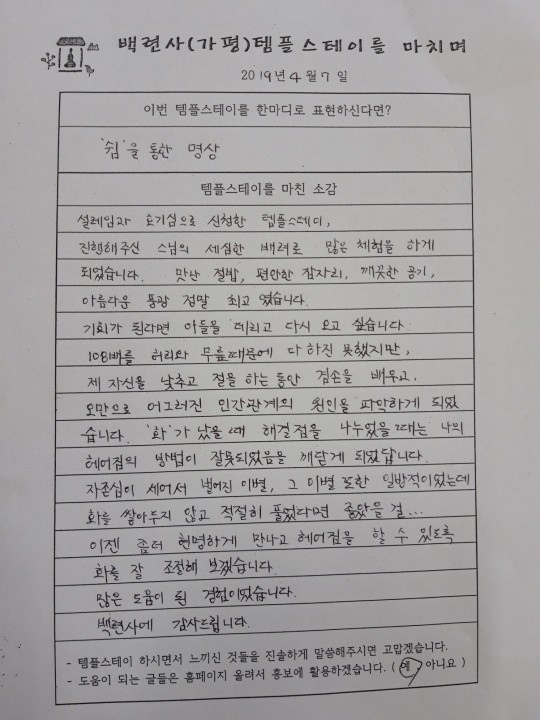 백련사(가평)템플스테이를 마치며
2019년 4월 7일
이번 템플스테이를 한마디로 표현하신다면?
'쉼'을 통한 명상
템플스테이를 마친 소감
설레임과 호기심으로 신청한 템플스테이,
진행해주신 스님의 세심한 배려로 많은 체험을 하게
되었습니다. 맛난 절밥, 편안한 잠자리, 깨끗한 공기,
아름다운 풍광 정말 최고 였습니다.
기회가 된다면 아들을 데리고 다시 오고 싶습니다.
108배를 허리와 무릎때문에 다 하진 못했지만,
제 자신을 낮추고 절을 하는 동안 겸손을 배우고,
오만으로 어그러진 인간관계의 원인을 파악하게 되었
습니다. '화'가 났을 때 해결점을 나누었을 때는 나의
헤어짐의 방법이 잘못되었음을 깨닫게 되었답니다.
자존심이 세어서 벌어진 이별, 그 이별 또한 일방적이었는데
화를 쌓아두지 않고 적절히 풀었다면 좋았을 걸...
이젠 좀더 현명하게 만나고 헤어짐을 할 수 있도록
화를 잘 조절해 보겠습니다.
많은 도움이 된 경험이었습니다.
백련사에 감사드립니다.
- 템플스테이 하시면서 느끼신 것들을 진솔하게 말씀해주시면 고맙겠습니다.
- 도움이 되는 글들은 홈페이지 올려서 홍보에 활용하겠습니다. ( 예 / 아니요 )